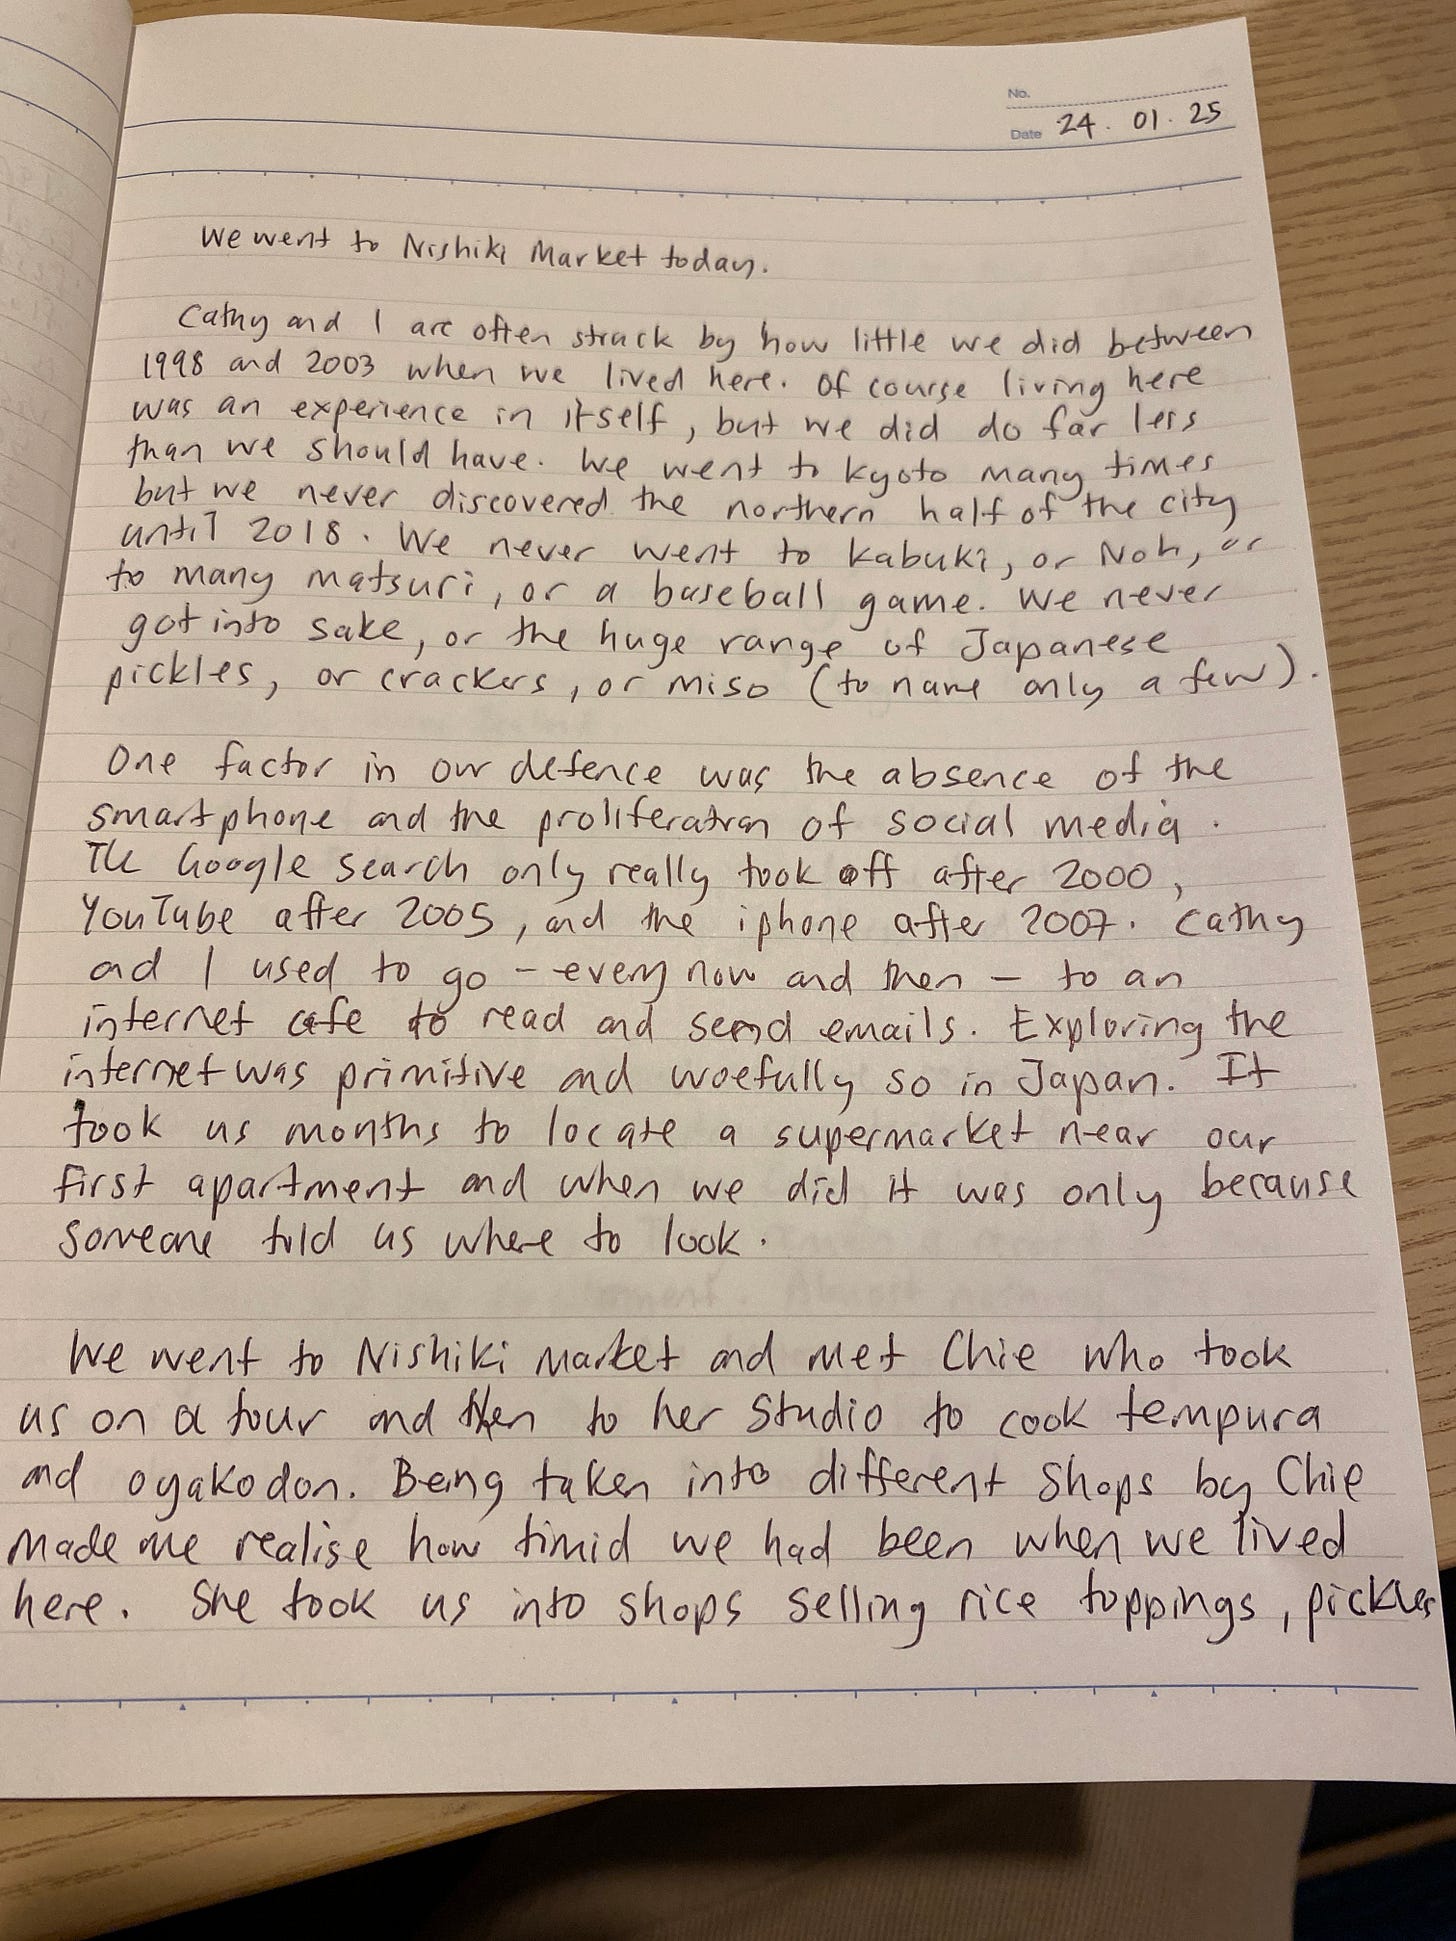 No.
Date 24. 01. 25
We went to Nishiki Market today.
Cathy and I are often struck by how little we did between
1998 and 2003 when we lived here. Of course living here
was an experience in itself, but we did do far less
than we should have. We went to Kyoto many times
but we never discovered the northern half of the city
until 2018. We never went to kabuki, or Noh, or
to many matsuri, or a baseball game. We never
got into sake, or the huge range of Japanese
pickles, or crackers, or miso (to name only a few).
One factor in our defence was the absence of the
smartphone and the proliferation of social media.
The Google search only really took off after 2000,
YouTube after 2005, and the iphone after 2007. Cathy
and I used to go - every now and then - to an
internet cafe to read and send emails. Exploring the
internet was primitive and woefully so in Japan. It
took us months to locate a supermarket near our
first apartment and when we did it was only because
someone told us where to look.
We went to Nishiki Market and met Chie who took
us on a tour and then to her studio to cook tempura
and oyakodon. Being taken into different shops by Chie
made me realise how timid we had been when we lived
here. She took us into shops selling rice toppings, pickles